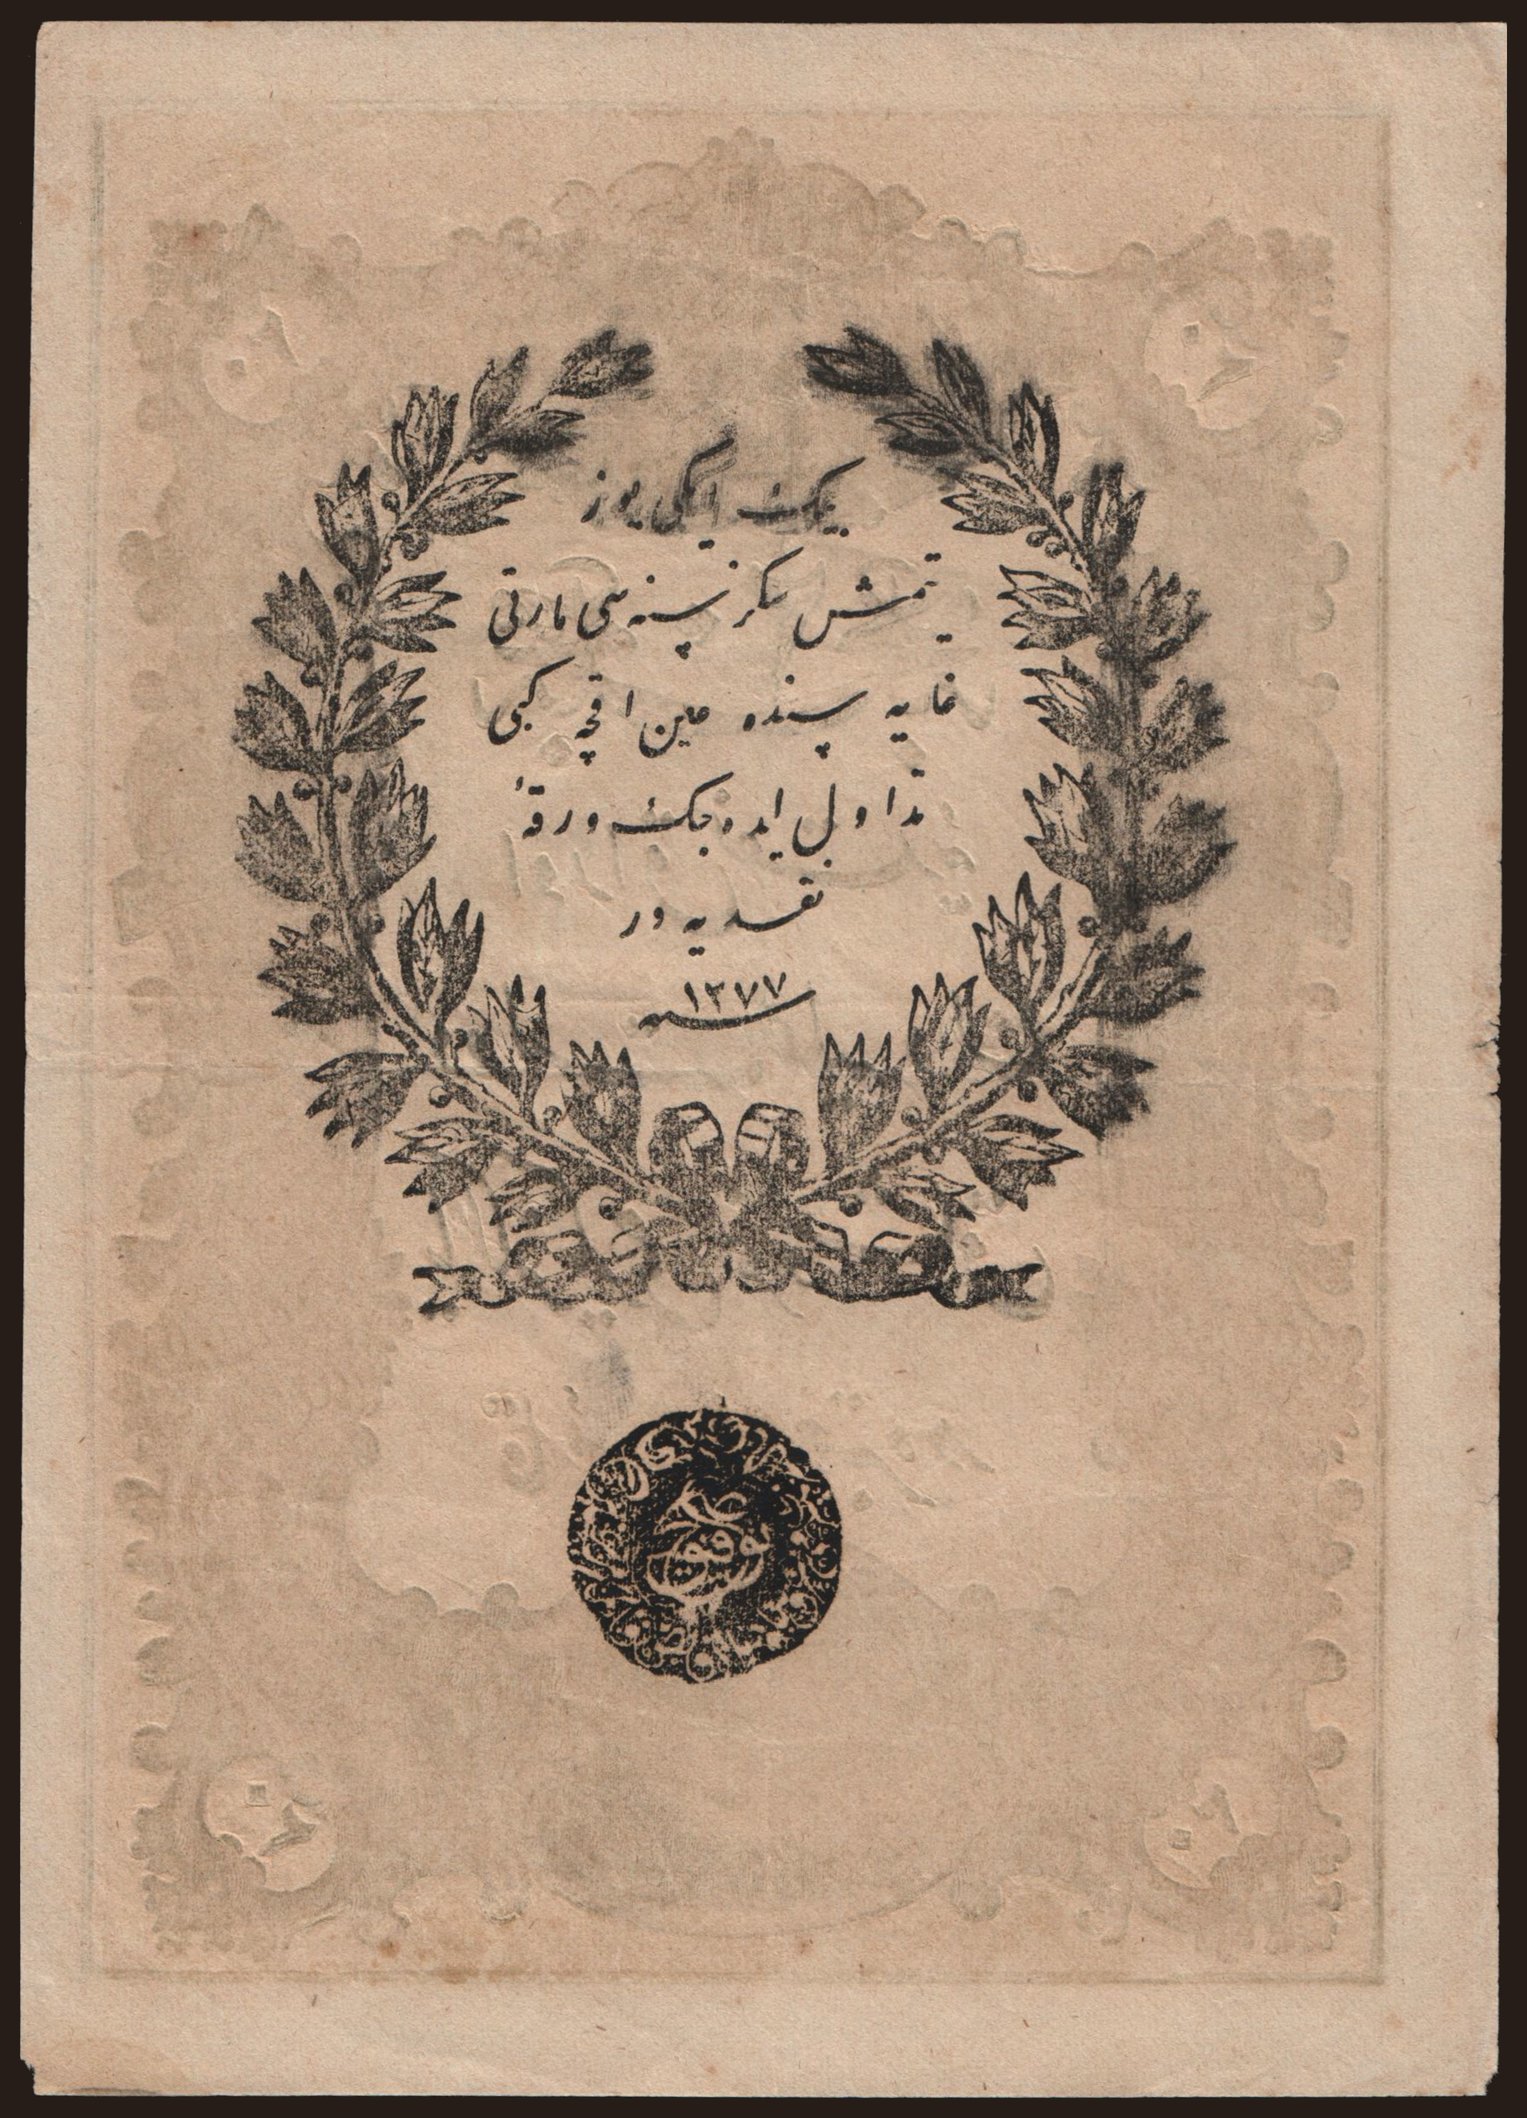 بيك ايكى يوز
يتمش سكز سنه سى مارتى
غايه سنده عين اقچه كبى
تداول ايده جك ورقهٔ
نقديه در
سنه ١٢٧٧